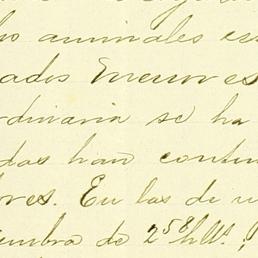 animales es
ados Menores
rdinaria se ha
das han contin
ores. En las de
embra de 2 58 hAs.